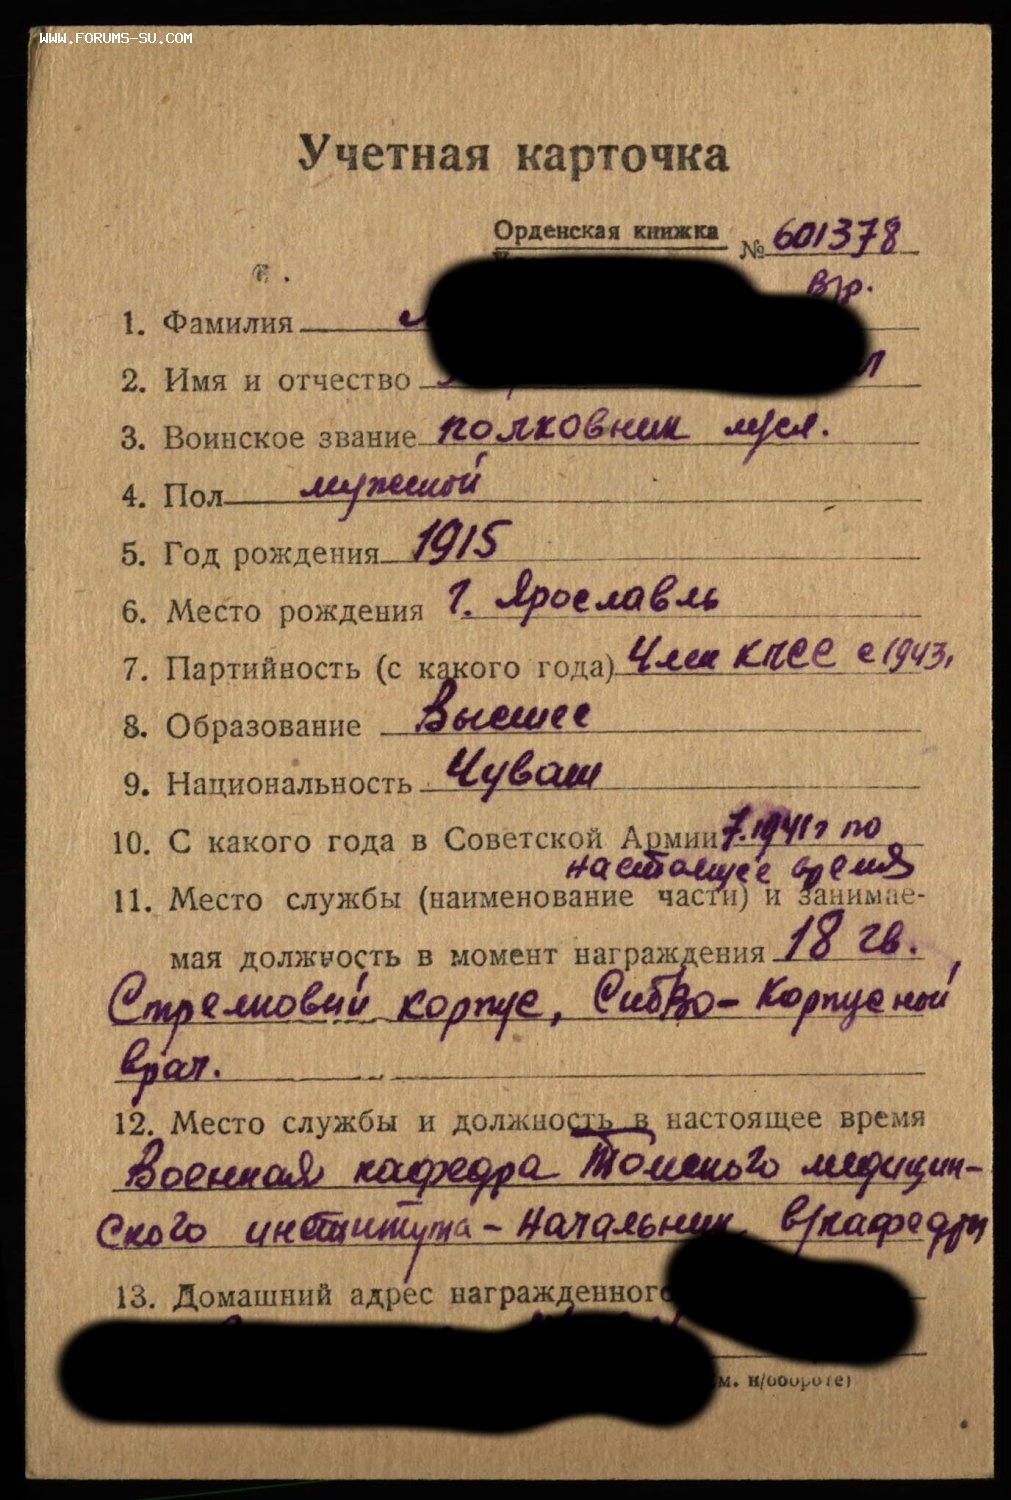 WWW.FORUMS-SU.COM
Учетная карточка
Орденская книжка
№ 601378
в/р.
1. Фамилия
2. Имя и отчество
3. Воинское звание полковник м/сл.
4. Пол мужской
5. Год рождения 1915
6. Место рождения г. Ярославль
7. Партийность (с какого года) Член КПСС с 1943г
8. Образование Высшее
9. Национальность Чуваш
10. С какого года в Советской Армии 7.1941г по
настоящее время
11. Место службы (наименование части) и занимае-
мая должность в момент награждения 18 гв.
Стрелковый корпус, СибВо - Корпусной
врач.
12. Место службы и должность в настоящее время
Военная кафедра Томского медицин-
ского института - Начальник в/кафедры
13. Домашний адрес награжденного
м. н/обороте)